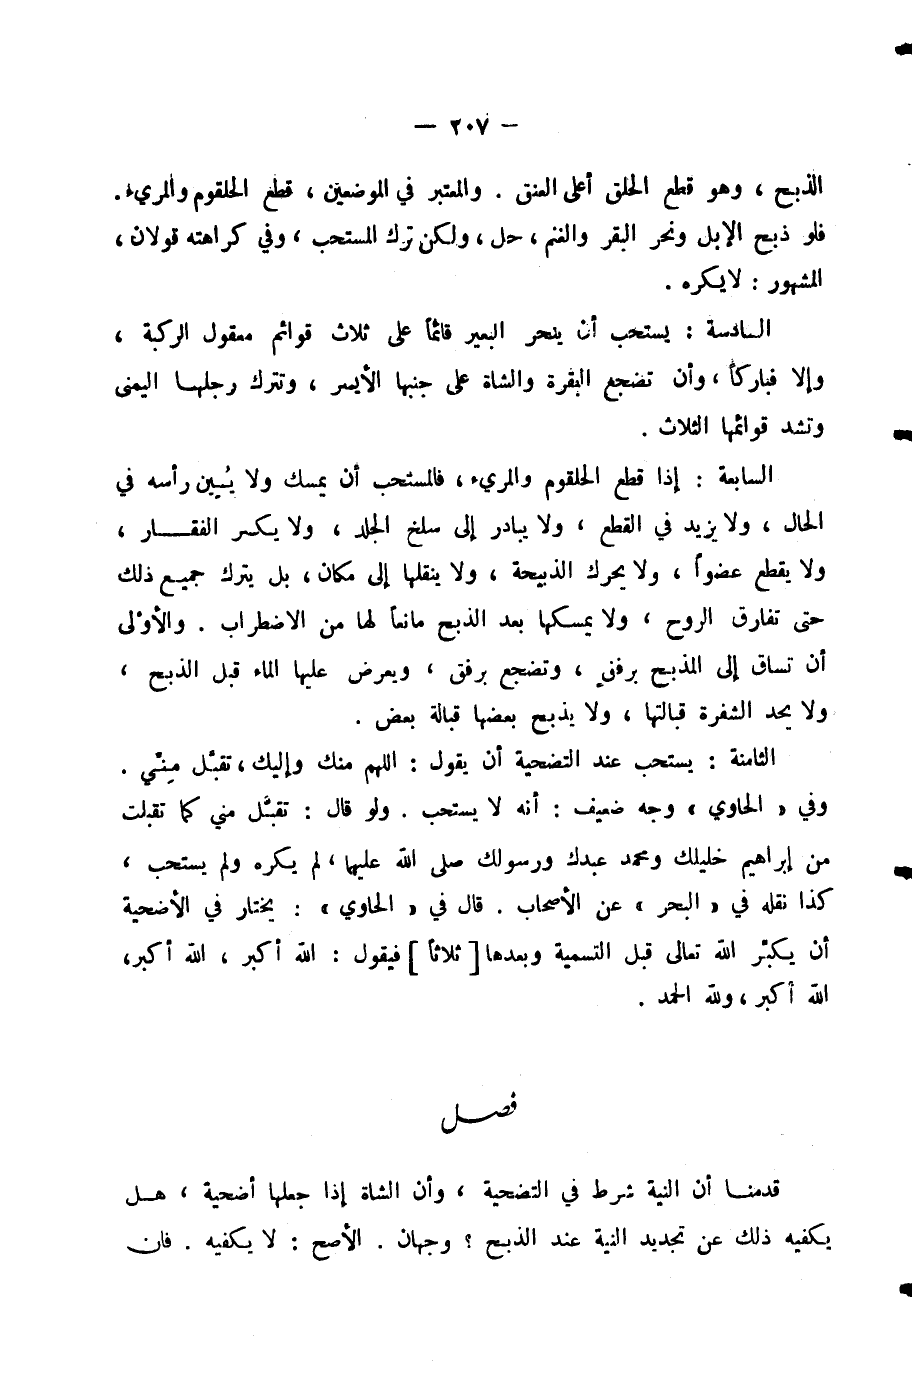 – ٢٠٧ —
الذبح ، وهو قطع الحلق أعلى العنق . والمعتبر في الموضعين ، قطع الحلقوم والمريء .
فلو ذبح الإبل ونحر البقر والغنم ، حل ، ولكن ترك المستحب ، وفي كراهته قولان ،
المشهور : لا يكره .
السادسة : يستحب أن ينحر البعير قائماً على ثلاث قوائم معقول الركبة ،
وإلا فباركاً ، وأن تضجع البقرة والشاة على جنبها الأيسر ، وتترك رجلها اليمنى
وتشد قوائمها الثلاث .
السابعة : إذا قطع الحلقوم والمريء ، فالمستحب أن يمسك ولا يُبِين رأسه في
الحال ، ولا يزيد في القطع ، ولا يبادر إلى سلخ الجلد ، ولا يكسر الفقار ،
ولا يقطع عضواً ، ولا يحرك الذبيحة ، ولا ينقلها إلى مكان ، بل يترك جميع ذلك
حتى تفارق الروح ، ولا يمسكها بعد الذبح مانعاً لها من الاضطراب . والأَوْلى
أن تساق إلى المذبح برفقٍ ، وتضجع برفق ، ويعرض عليها الماء قبل الذبح ،
ولا يحد الشفرة قبالتها ، ولا يذبح بعضها قبالة بعض .
الثامنة : يستحب عند التضحية أن يقول : اللهم منك وإليك ، تقبَّل مِنّي .
وفي « الحاوي » وجه ضعيف : أنه لا يستحب . ولو قال : تقبَّل مني كما تقبلت
من إبراهيم خليلك ومحمد عبدك ورسولك صلى الله عليهما ، لم يكره ولم يستحب ،
كذا نقله في « البحر » عن الأصحاب . قال في « الحاوي » : يختار في الأضحية
أن يكبّر الله تعالى قبل التسمية وبعدها [ ثلاثاً ] فيقول : الله أكبر ، الله أكبر ،
الله أكبر ، ولله الحمد .
فصل
قدمنا أن النية شرط في التضحية ، وأن الشاة إذا جعلها أضحية ، هل
يكفيه ذلك عن تجديد النية عند الذبح ؟ وجهان . الأصح : لا يكفيه . فان